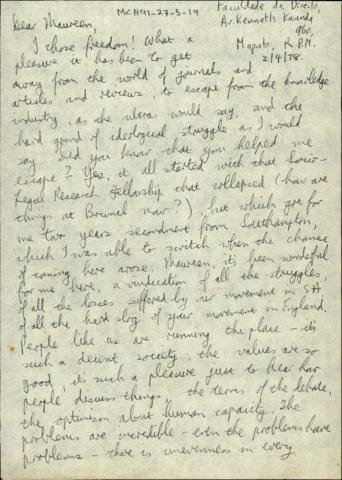 MCH91-27-5-19
Faculdade de Direito,
Av. Kenneth Kaunda
960,
Maputo, R.P.M.
2/4/78.
Dear Maureen,
I chose freedom! What a
pleasure it has been to get
away from the world of journals and
articles and reviews, to escape from the knowledge
industry, as the ultras would say, and the
hard grind of ideological struggle as I would
say. Did you know that you helped me
escape? Yes, it all started with that Socio-
Legal Research Fellowship that collapsed (how are
things at Brunel now?), but which got for
me two years secondment from Southampton,
which I was able to switch when the chance
of coming here arose. Maureen, it's been wonderful
for me here, a vindication of all the struggles,
of all the losses suffered by our movement in SA
of all the hard slog of your movement in England.
People like us are running the place – it's
such a decent society, the values are so
good, it's such a pleasure just to hear how
people discuss things, the terms of the debate,
the optimism about human capacity. The
problems are incredible – even the problems have
problems – there is unevenness in every